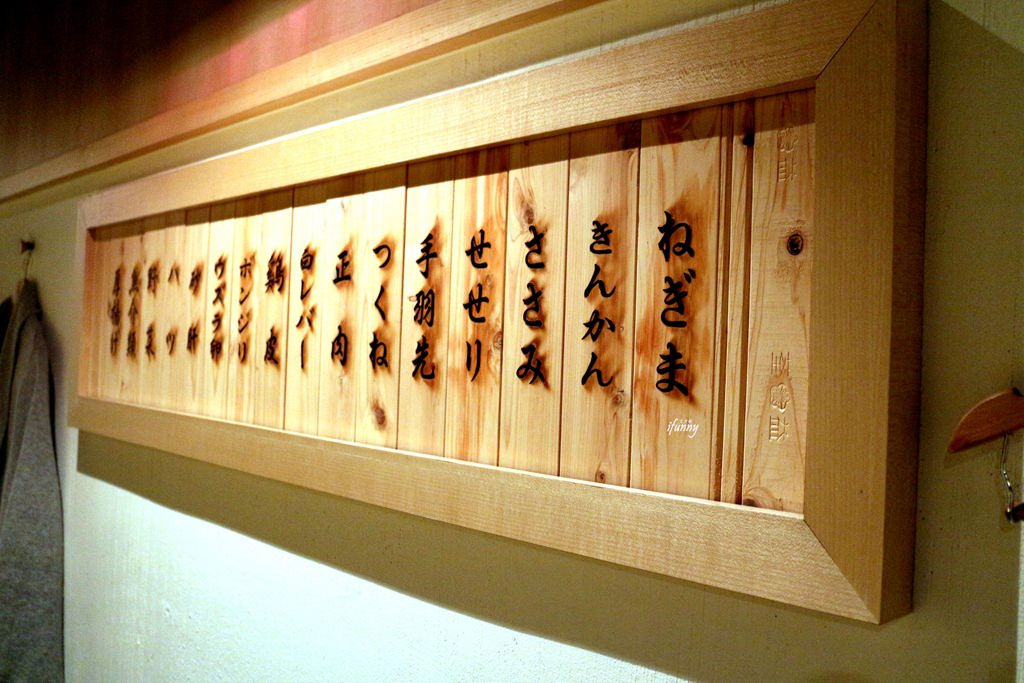 ねぎま
きんかん
ささみ
せせり
手羽先
つくね
正肉
白レバー
鶏皮
ボンジリ
ウズラ卵
砂肝
ハツ
野菜
厚揚げ
ifunny